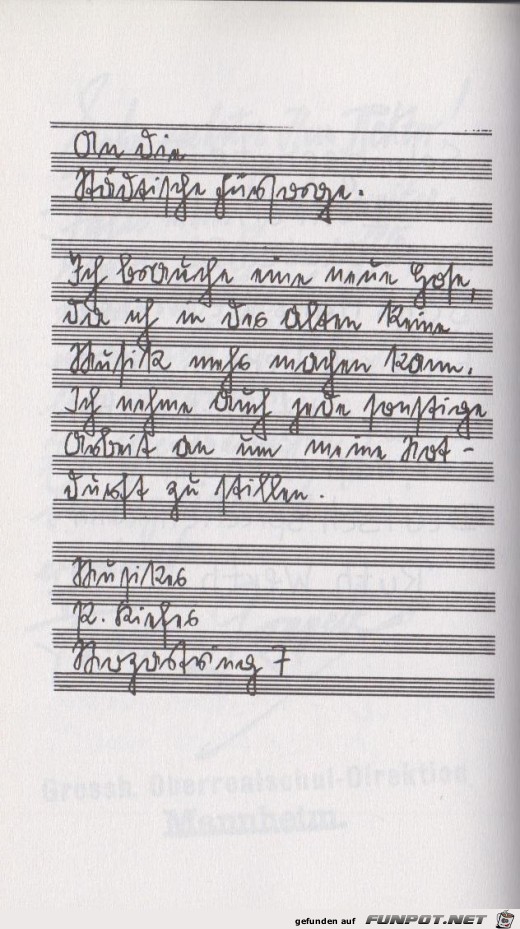 An die
Städtische Fürsorge.
Ich brauche eine neue Hose,
da ich in der alten keine
Musik mehr machen kann.
Ich nehme auch jede sonstige
Arbeit an um meine Not-
durft zu stillen.
Musiker
K.
7
Grossh. Oberrealschul-Direktion
Mannheim.
gefunden auf FUNPOT.NET